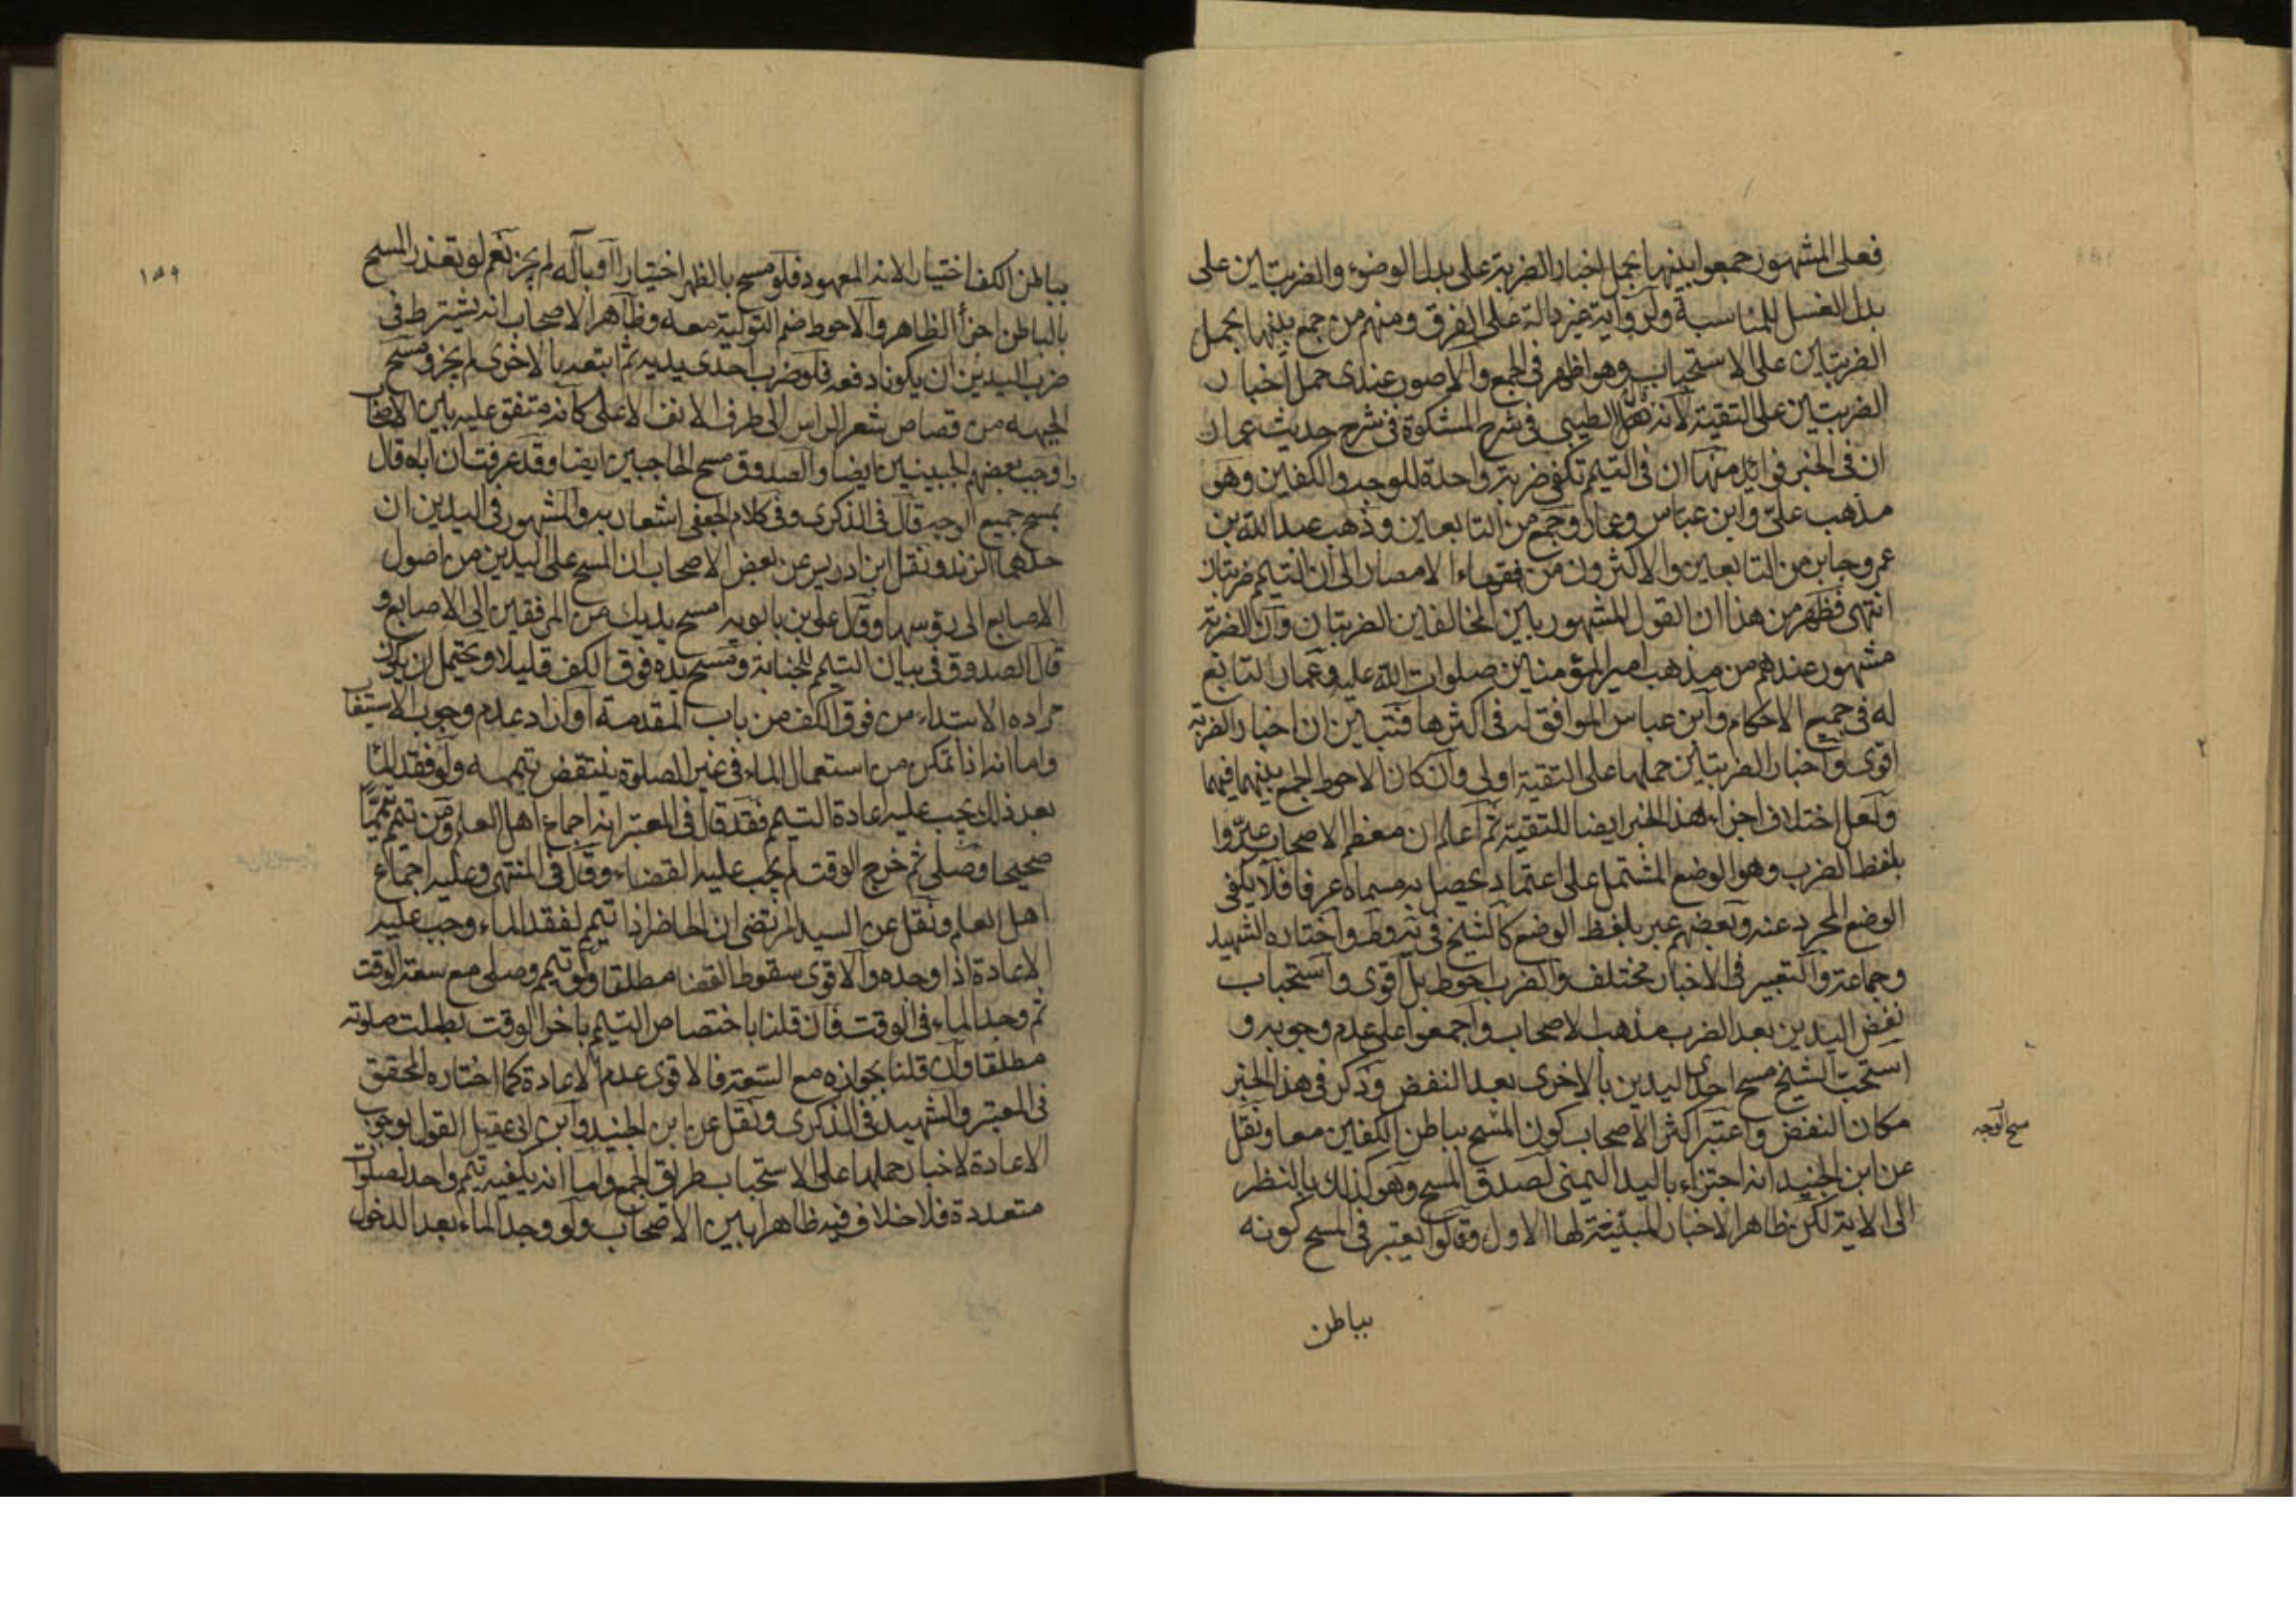 فعلى المشهور جمعوا بينها بحمل اخبار الضربة على بدل الوضوء والضربتين على
بدل الغسل للمناسبة ولرواية غير دالة على الفرق ومنهم من جمع بينها بحمل
الضربتين على الاستحباب وهو اظهر في الجمع والاصوب عندى حمل اخبار
الضربتين على التقية لانه نقل الطيبي في شرح المشكوة في شرح حديث عمار
ان في الخبر فوائد منها ان في التيمم تكفي ضربة واحدة للوجه والكفين وهو
مذهب علي وابن عباس وعمار وجمع من التابعين وذهب عبد الله بن
عمر وجابر من التابعين والاكثرون من فقهاء الامصار الى ان التيمم ضربتان
انتهى فظهر من هذا ان القول المشهور بين المخالفين الضربتان وان الضربة
مشهور عندهم من مذهب امير المؤمنين صلوات الله عليه وعمار التابع
له في جميع الاحكام وابن عباس الموافق له في اكثرها فتبين ان اخبار الضربة
اقوى واخبار الضربتين حملها على التقية اولى وان كان الاحوط الجمع بينهما فيهما
ولعل اختلاف اجزاء هذا الخبر ايضا للتقية ثم اعلم ان معظم الاصحاب عبروا
بلفظ الضرب وهو الوضع المشتمل على اعتماد يحصل به مسماه عرفا فلا يكفي
الوضع المجرد عنه وبعضهم عبر بلفظ الوضع كالشيخ في يه وط واختاره الشهيد
وجماعة والتعبير في الاخبار مختلف والضرب احوط بل اقوى واستحباب
نفض اليدين بعد الضرب مذهب الاصحاب واجمعوا على عدم وجوبه و
استحب الشيخ مسح احدى اليدين بالاخرى بعد النفض وذكر في هذا الخبر
مكان النفض واعتبر اكثر الاصحاب كون المسح بباطن الكفين معا ونقل
عن ابن الجنيد انه اجتزاء باليد اليمنى لصدق المسح وهو كذلك بالنظر
الى الاية لكن ظاهر الاخبار المبينة لها الاول وقالوا يعتبر في المسح كونه
بباطن
مسح الوجه
١٥٩
بباطن الكف اختيارا لانه المعهود فلو مسح بالظهر اختيارا او بآلة لم يجز نعم لو تعذر المسح
بالباطن اجزأ الظاهر والاحوط ضم التولية معه وظاهر الاصحاب انه يشترط في
ضرب اليدين ان يكونا دفعة فلو ضرب احدى يديه ثم اتبعه بالاخرى لم يجز ومسح
الجبهه من قصاص شعر الراس الى طرف الانف الاعلى كانه متفق عليه بين الاصحاب
واوجب بعضهم الجبينين ايضا والصدوق مسح الحاجبين ايضا وقد عرفت ان اباه قال
بمسح جميع الوجه قال في الذكرى وفي كلام الجعفي اشعار به والمشهور في اليدين ان
حدهما الزند ونقل ابن ادريس عن بعض الاصحاب ان المسح على اليدين من اصول
الاصابع الى رؤسها وقال علي بن بابويه امسح يديك من المرفقين الى الاصابع و
قال الصدوق في بيان التيمم للجنابة ومسح يده فوق الكف قليلا ويحتمل ان يكون
مراده الابتداء من فوق الكف من باب المقدمة او اراد عدم وجوب الاستيفا
واما انه اذا تمكن من استعمال الماء في غير الصلوة ينتقض تيممه ولو فقد الماء
بعد ذلك يجب عليه اعادة التيمم فقد قال في المعتبر انه اجماع اهل العلم ومن تيمم تيمما
صحيحا وصلى ثم خرج الوقت لم يجب عليه القضاء وقال في المنتهى وعليه اجماع
اهل العلم ونقل عن السيد المرتضى ان الحاضر اذا تيمم لفقد الماء وجب عليه
الاعادة اذا وجده والاقوى سقوط القضا مطلقا ولو تيمم وصلى مع سعة الوقت
ثم وجد الماء في الوقت فان قلنا باختصاص التيمم باخر الوقت بطلت صلوته
مطلقا وان قلنا بجوازه مع السعة فالاقوى عدم الاعادة كما اختاره المحقق
في المعتبر والشهيد في الذكرى ونقل عن ابن الجنيد وابن ابي عقيل القول بوجوب
الاعادة لاخبار حملها على الاستحباب طريق الجمع واما انه يكفيه تيمم واحد لصلوات
متعددة فلا خلاف فيه ظاهرا بين الاصحاب ولو وجد الماء بعد الدخول